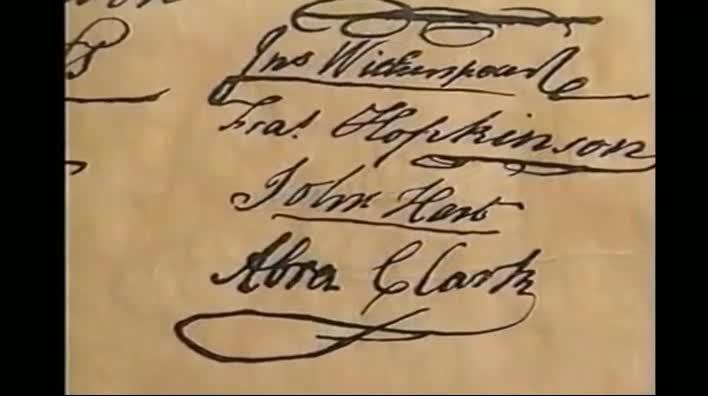 Jno Witherspoon
Fras. Hopkinson
John Hart
Abra Clark